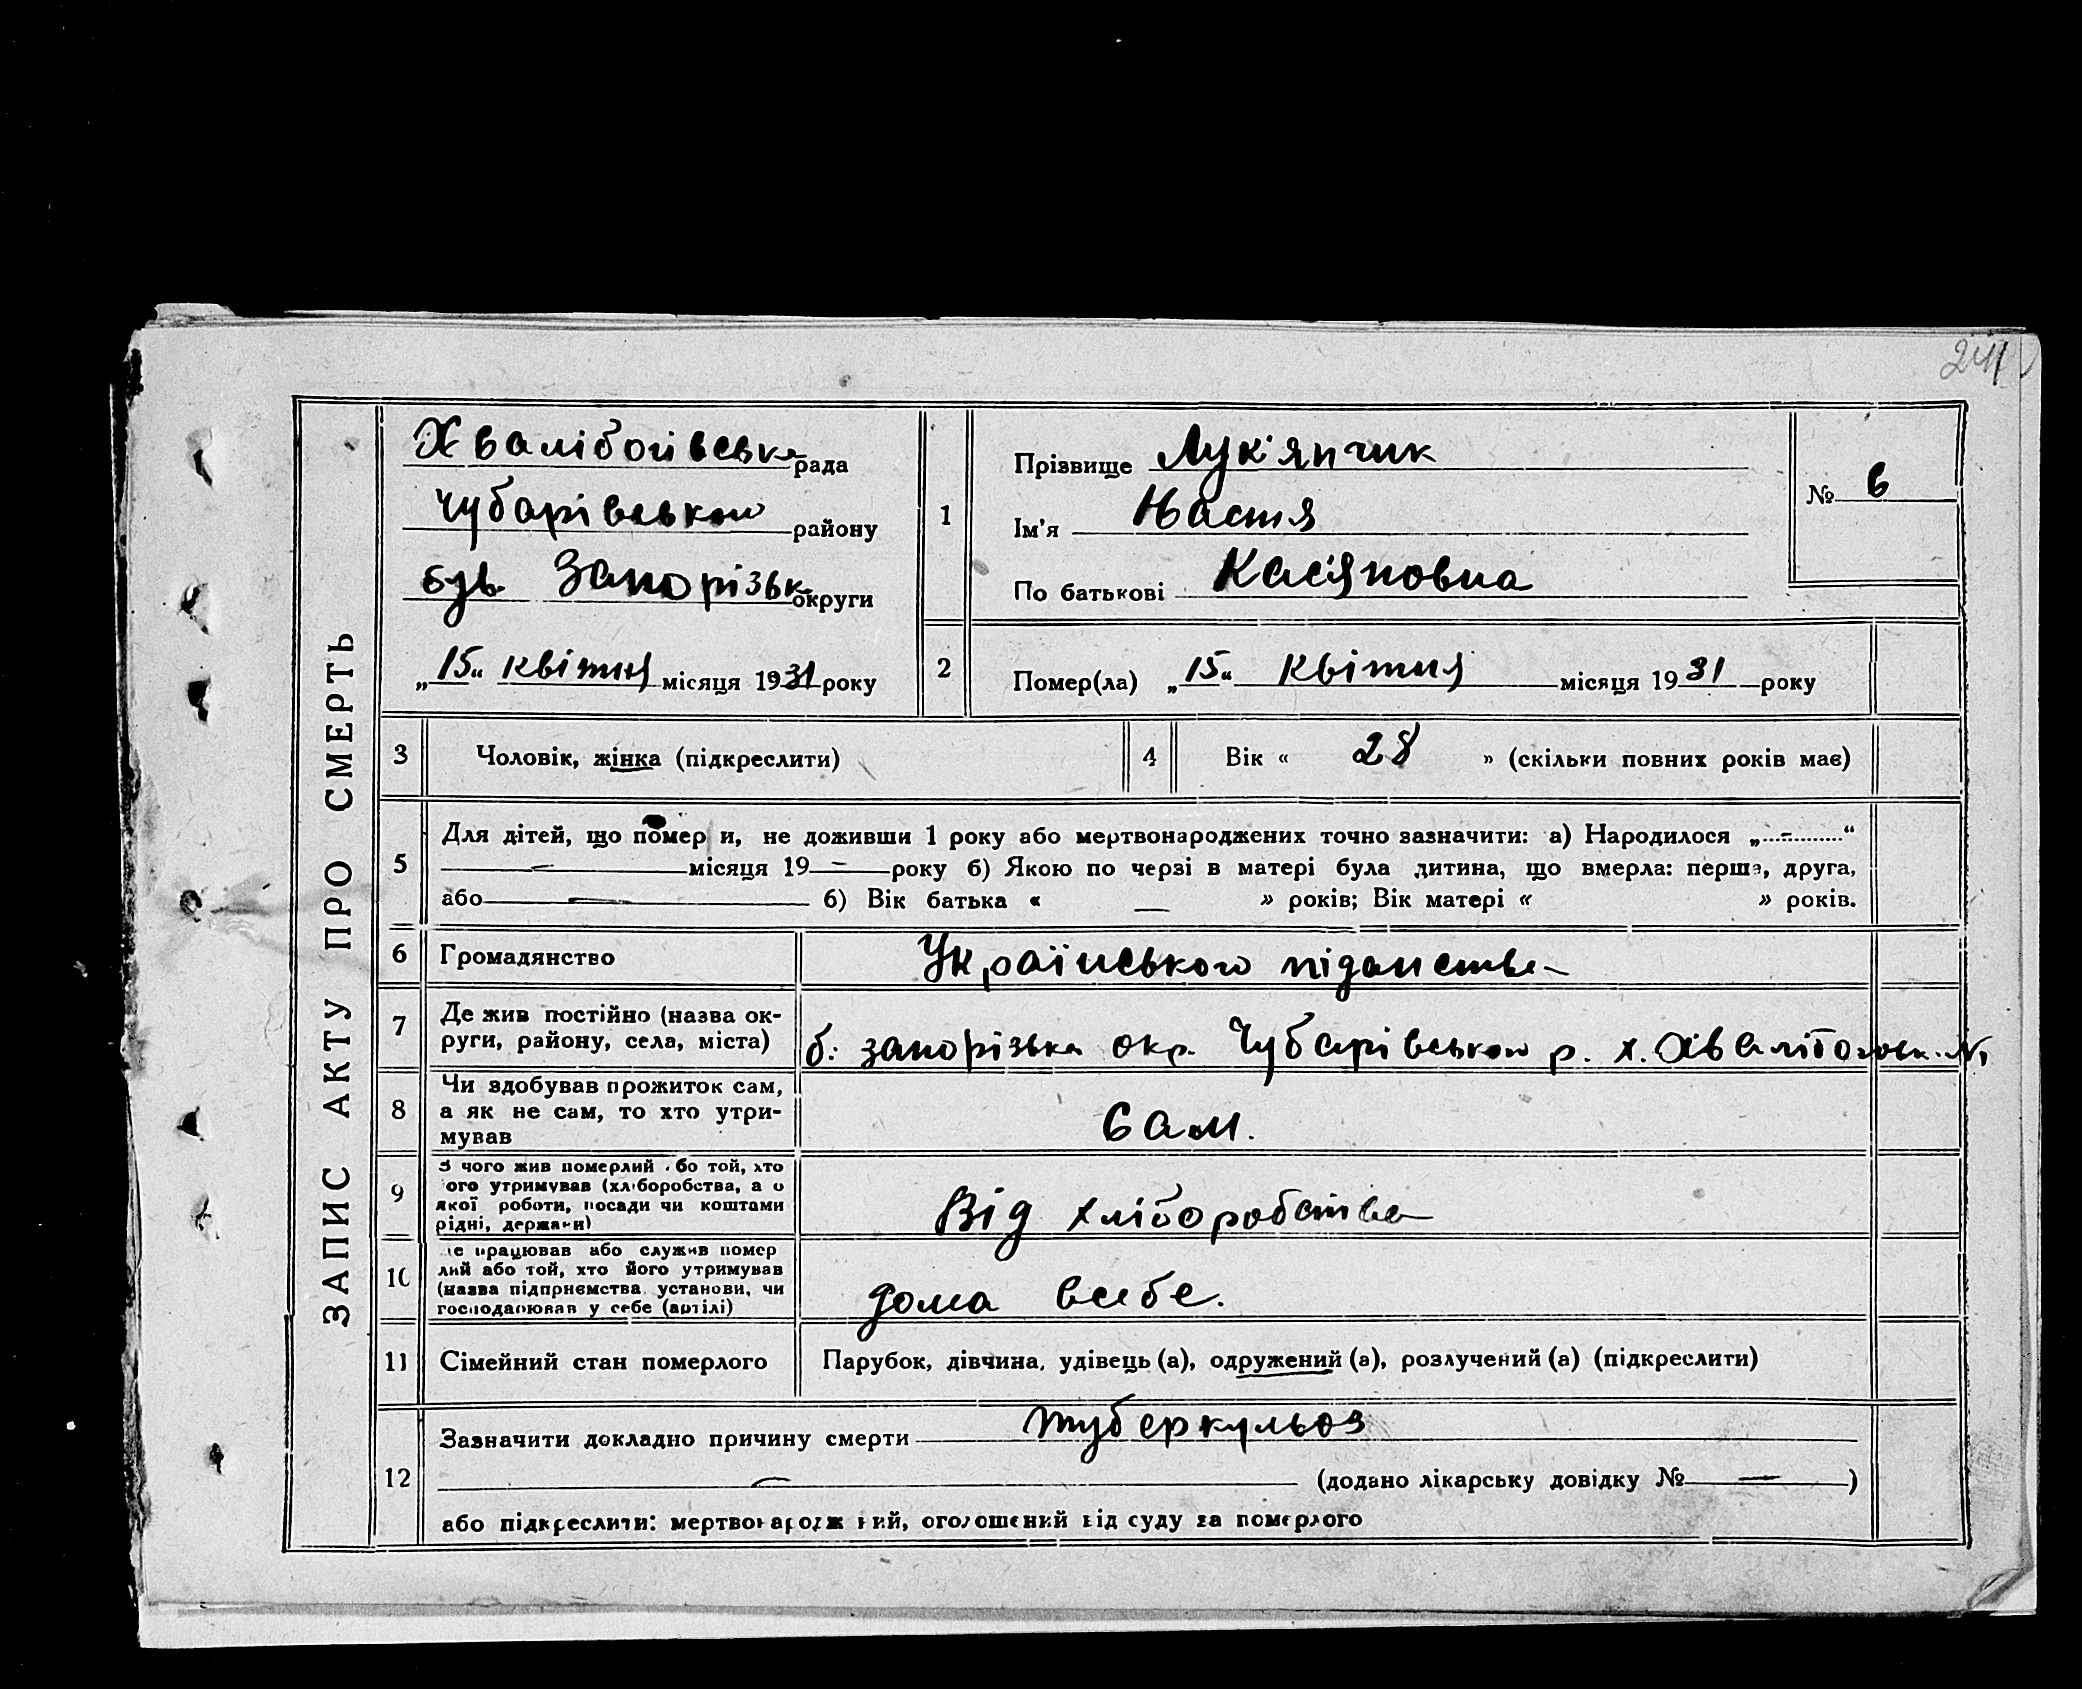 241
ЗАПИС АКТУ ПРО СМЕРТЬ
Хвалібогівська рада
Чубарівського району
був. Запорізьк округи
„15“ квітня місяця 1931 року
1
Прізвище Лук'янчик
Ім'я Настя
По батькові Кас'яновна
№ 6
2 Помер(ла) „15“ Квітня місяця 1931 року
3 Чоловік, жінка (підкреслити)
4 Вік « 28 » (скільки повних років має)
5
Для дітей, що помер и, не доживши 1 року або мертвонароджених точно зазначити: а) Народилося „-“
— місяця 19 — року б) Якою по черзі в матері була дитина, що вмерла: перша, друга,
або — б) Вік батька « — » років; Вік матері « » років.
6 Громадянство Українського піданства
7 Де жив постійно (назва ок-
руги, району, села, міста) б: запорізька окр. Чубарівського р. х.
8 Чи здобував прожиток сам,
а як не сам, то хто утри-
мував Сам.
9 З чого жив померлий або той, хто
його утримував (хліборобства, а о
якої роботи, посади чи коштами
рідні, держави) Від хліборобства
10 Де працював або служив помер
лий або той, хто його утримував
(назва підприємства, установи, чи
господарював у себе (артілі) дома всебе.
11 Сімейний стан померлого Парубок, дівчина, удівець (а), одружений (а), розлучений (а) (підкреслити)
12
Зазначити докладно причину смерти туберкульоз
— (додано лікарську довідку № — )
або підкреслити: мертвонароджений, оголошений від суду за померлого